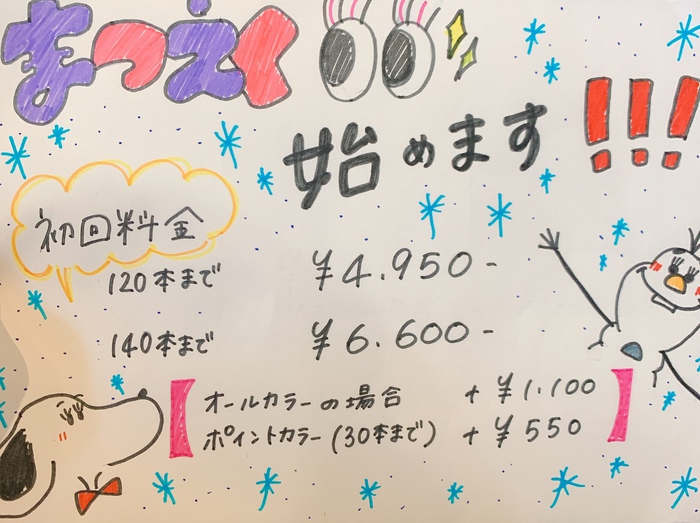 まつえく
始めます!!!
初回料金
120本まで ¥4.950-
140本まで ¥6.600-
オールカラーの場合 +¥1.100
ポイントカラー(30本まで) +¥550